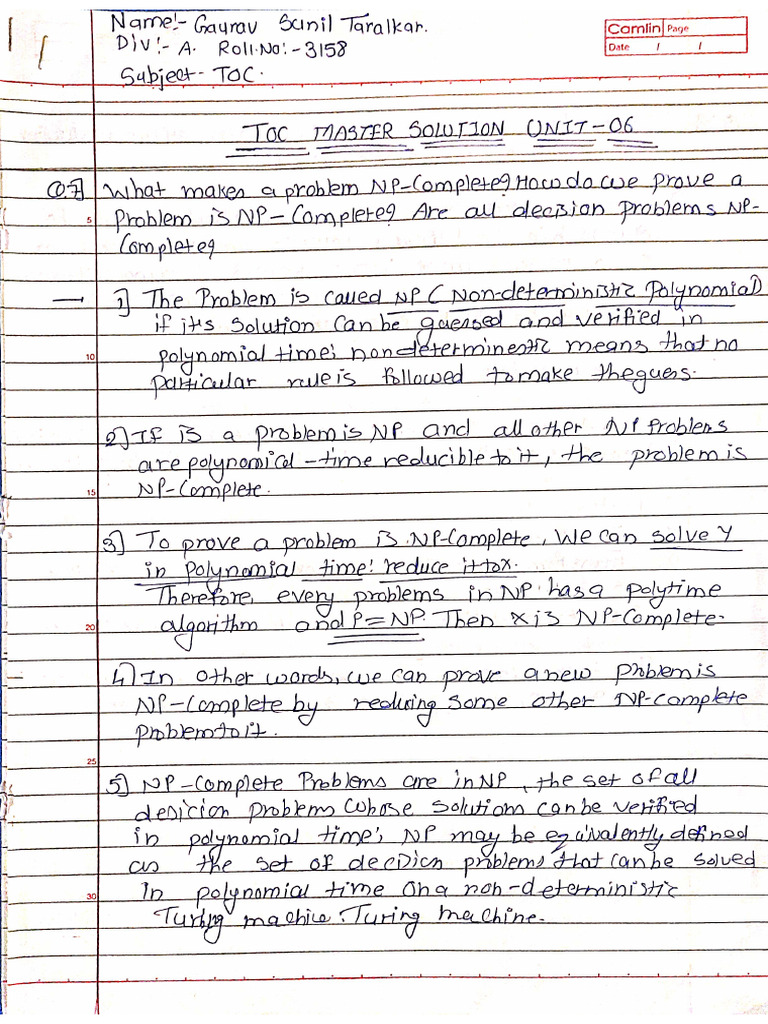 Name:- Gaurav Sunil Taralkar.
Div:- A. Roll.No:- 3158
Subject:- TOC.
Camlin Page
Date / /
TOC MASTER SOLUTION UNIT-06
Q.7] What makes a problem NP-Complete? How do we prove a
5 Problem is NP-Complete? Are all decision problems NP-
Complete?
— 1] The Problem is called NP ( Non-deterministic Polynomial)
if its solution can be guessed and verified in
10 polynomial time; nondeterminestic means that no
particular rule is followed to make the guess.
2] If is a problem is NP and all other NP problems
are polynomial-time reducible to it, the problem is
15 NP-Complete.
3] To prove a problem is NP-Complete, We can solve Y
in polynomial time: reduce it to x.
Therefore, every problems in NP has a polytime
20 algorithm and P=NP. Then x is NP-Complete.
4] In other words, we can prove a new problem is
NP-Complete by reducing some other NP-complete
problem to it.
25
5] NP-Complete Problems are in NP, the set of all
desicion problems whose solutions can be verified
in polynomial time; NP may be equivalently defined
as the set of decision problems that can be solved
30 in polynomial time on a non-deterministic
Turing machine. Turing machine.